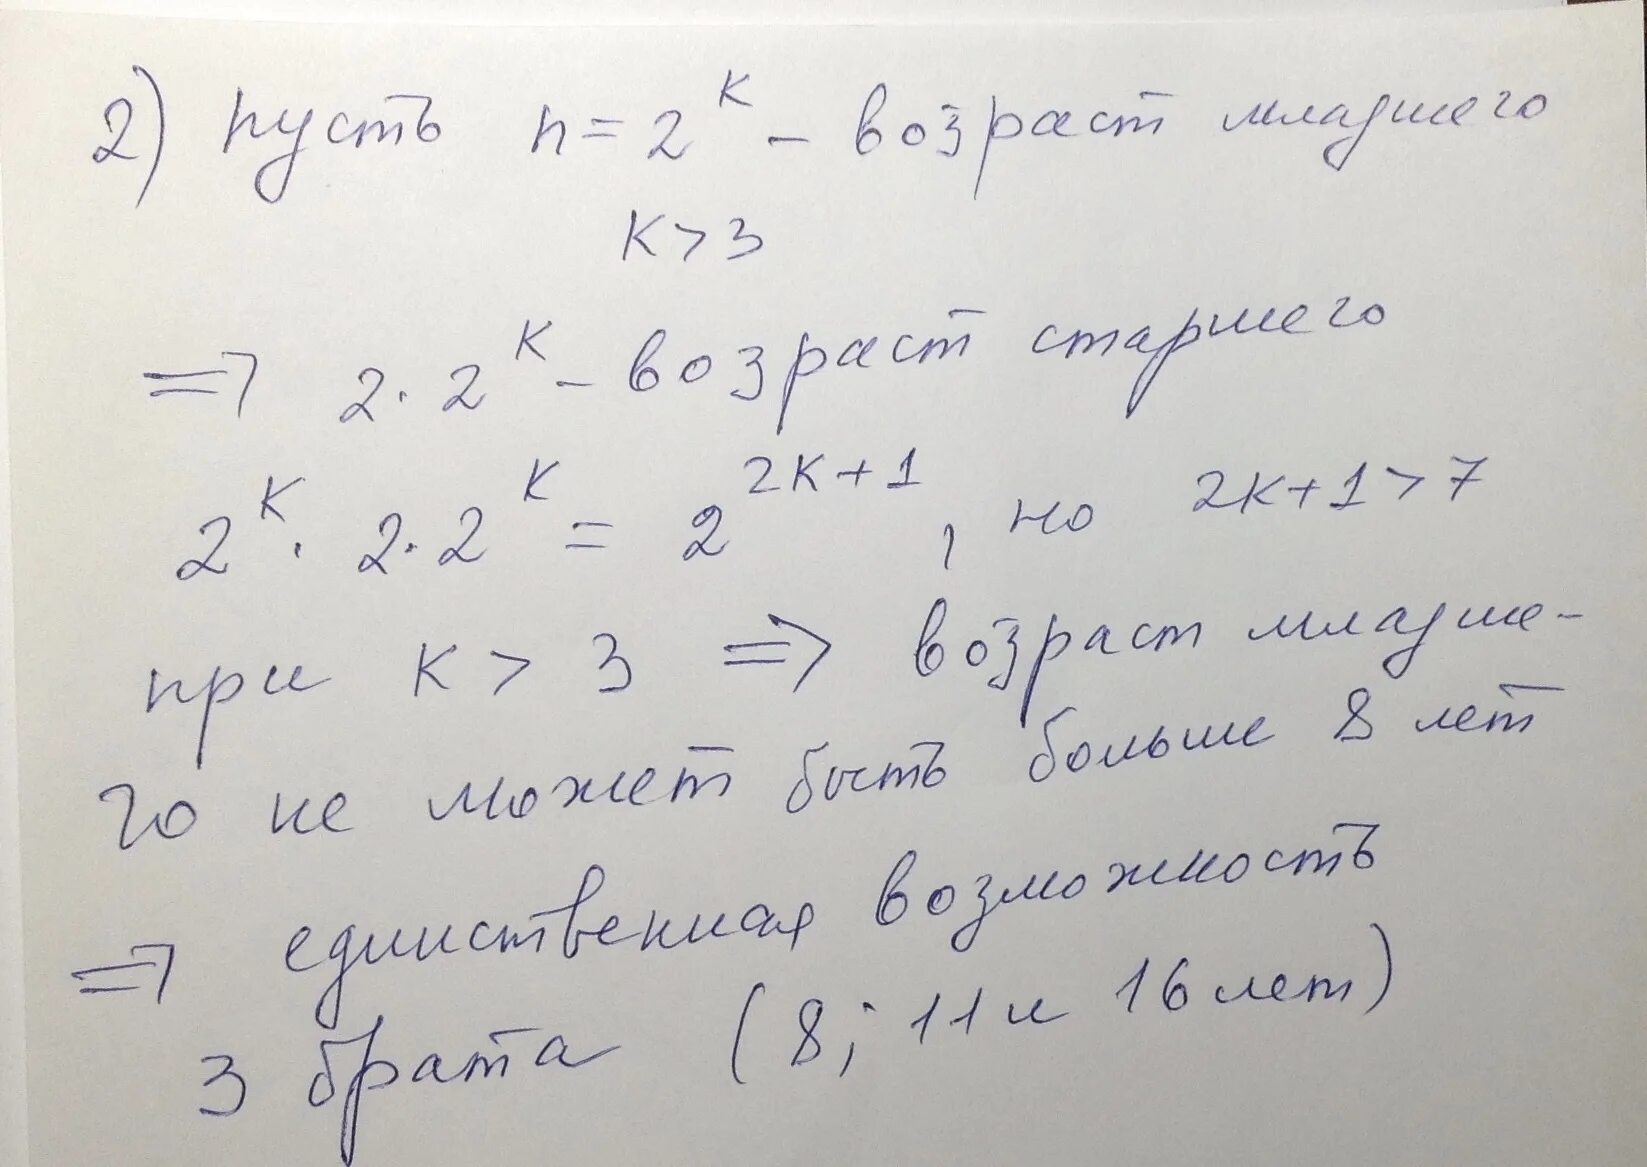 2) пусть n = 2^k – возраст младшего
k > 3
⇒ 2 · 2^k – возраст старшего
2^k · 2 · 2^k = 2^(2k+1), но 2k+1 > 7
при k > 3 ⇒ возраст младше-
го не может быть больше 8 лет
⇒ единственная возможность
3 брата (8; 11 и 16 лет)